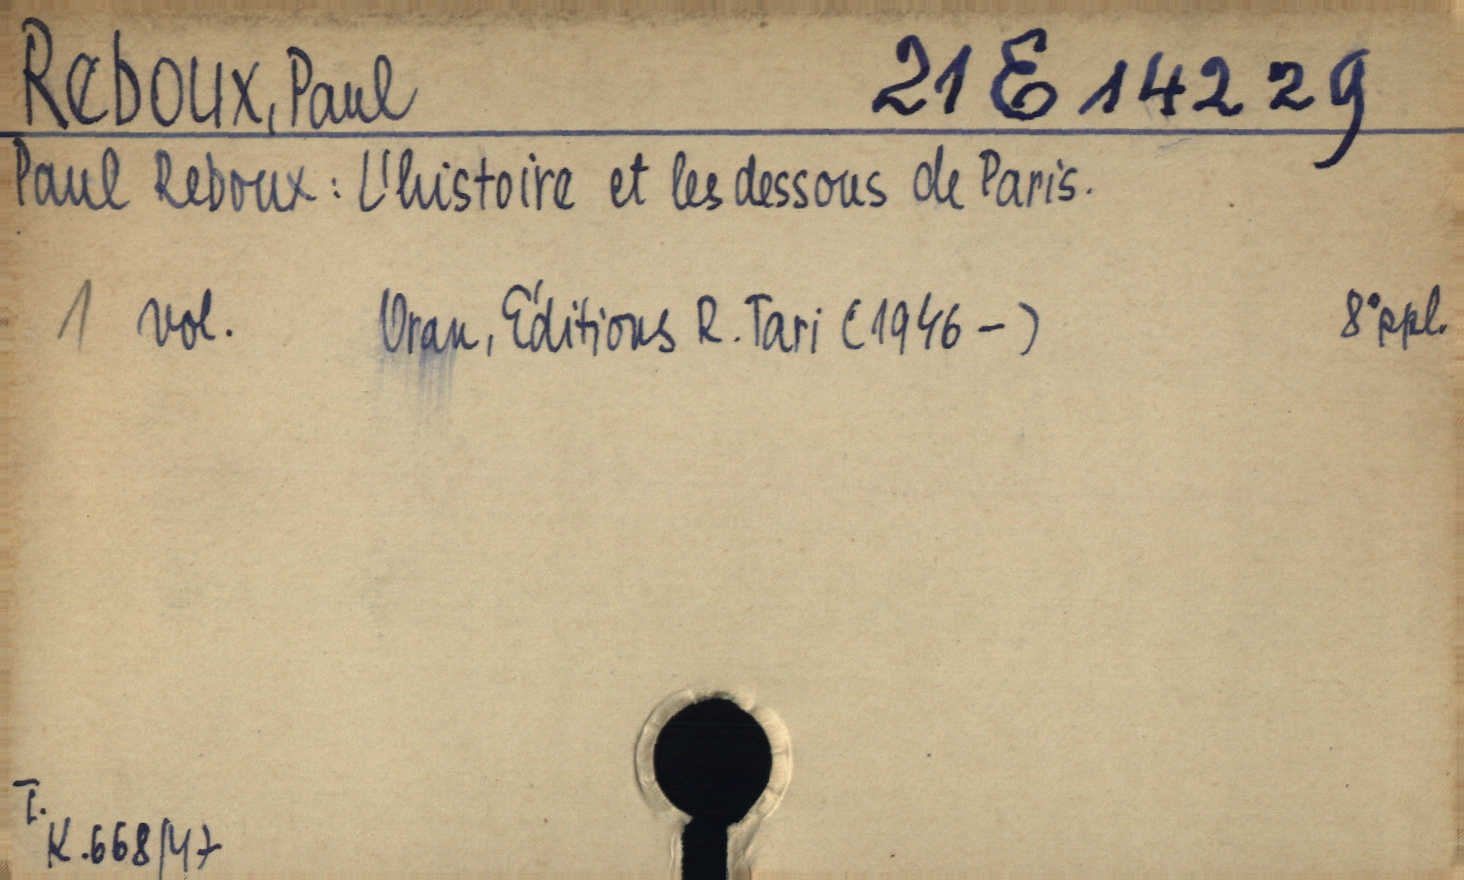 Reboux, Paul 21 E 14229
Paul Reboux: L'histoire et les dessous de Paris.
1 vol. Oran, Éditions R. Tari (1946 - ) 8° ppl.
T.
K.668/47